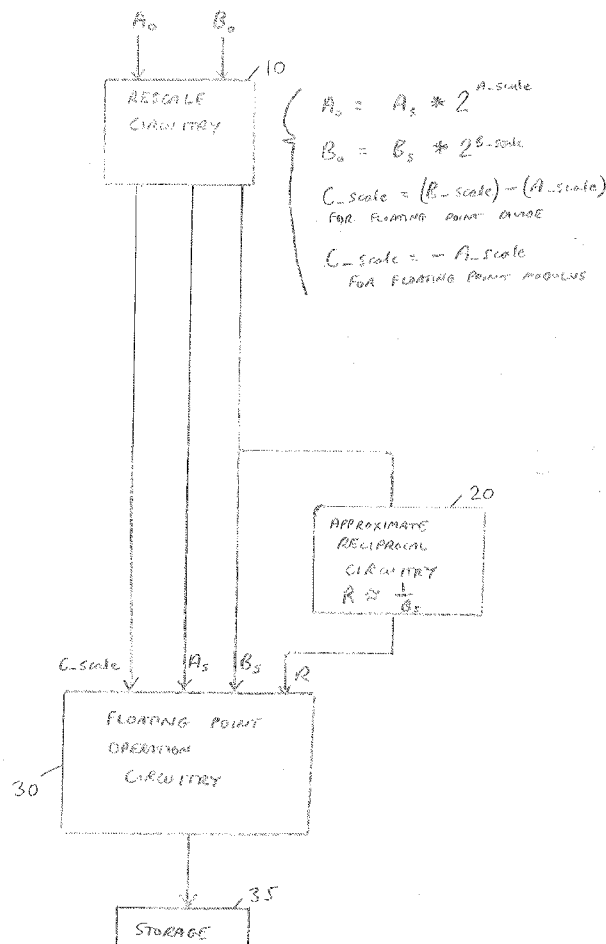 A₀ B₀
10
RESCALE
CIRCUITRY
A₀ = Aₛ * 2^A_scale
B₀ = Bₛ * 2^B_scale
C_scale = (B_scale) - (A_scale)
FOR FLOATING POINT DIVIDE
C_scale = - A_scale
FOR FLOATING POINT MODULUS
20
APPROXIMATE
RECIPROCAL
CIRCUITRY
R ≈ 1/Bₛ
C_scale Aₛ Bₛ R
FLOATING POINT
OPERATION
CIRCUITRY
30
35
STORAGE